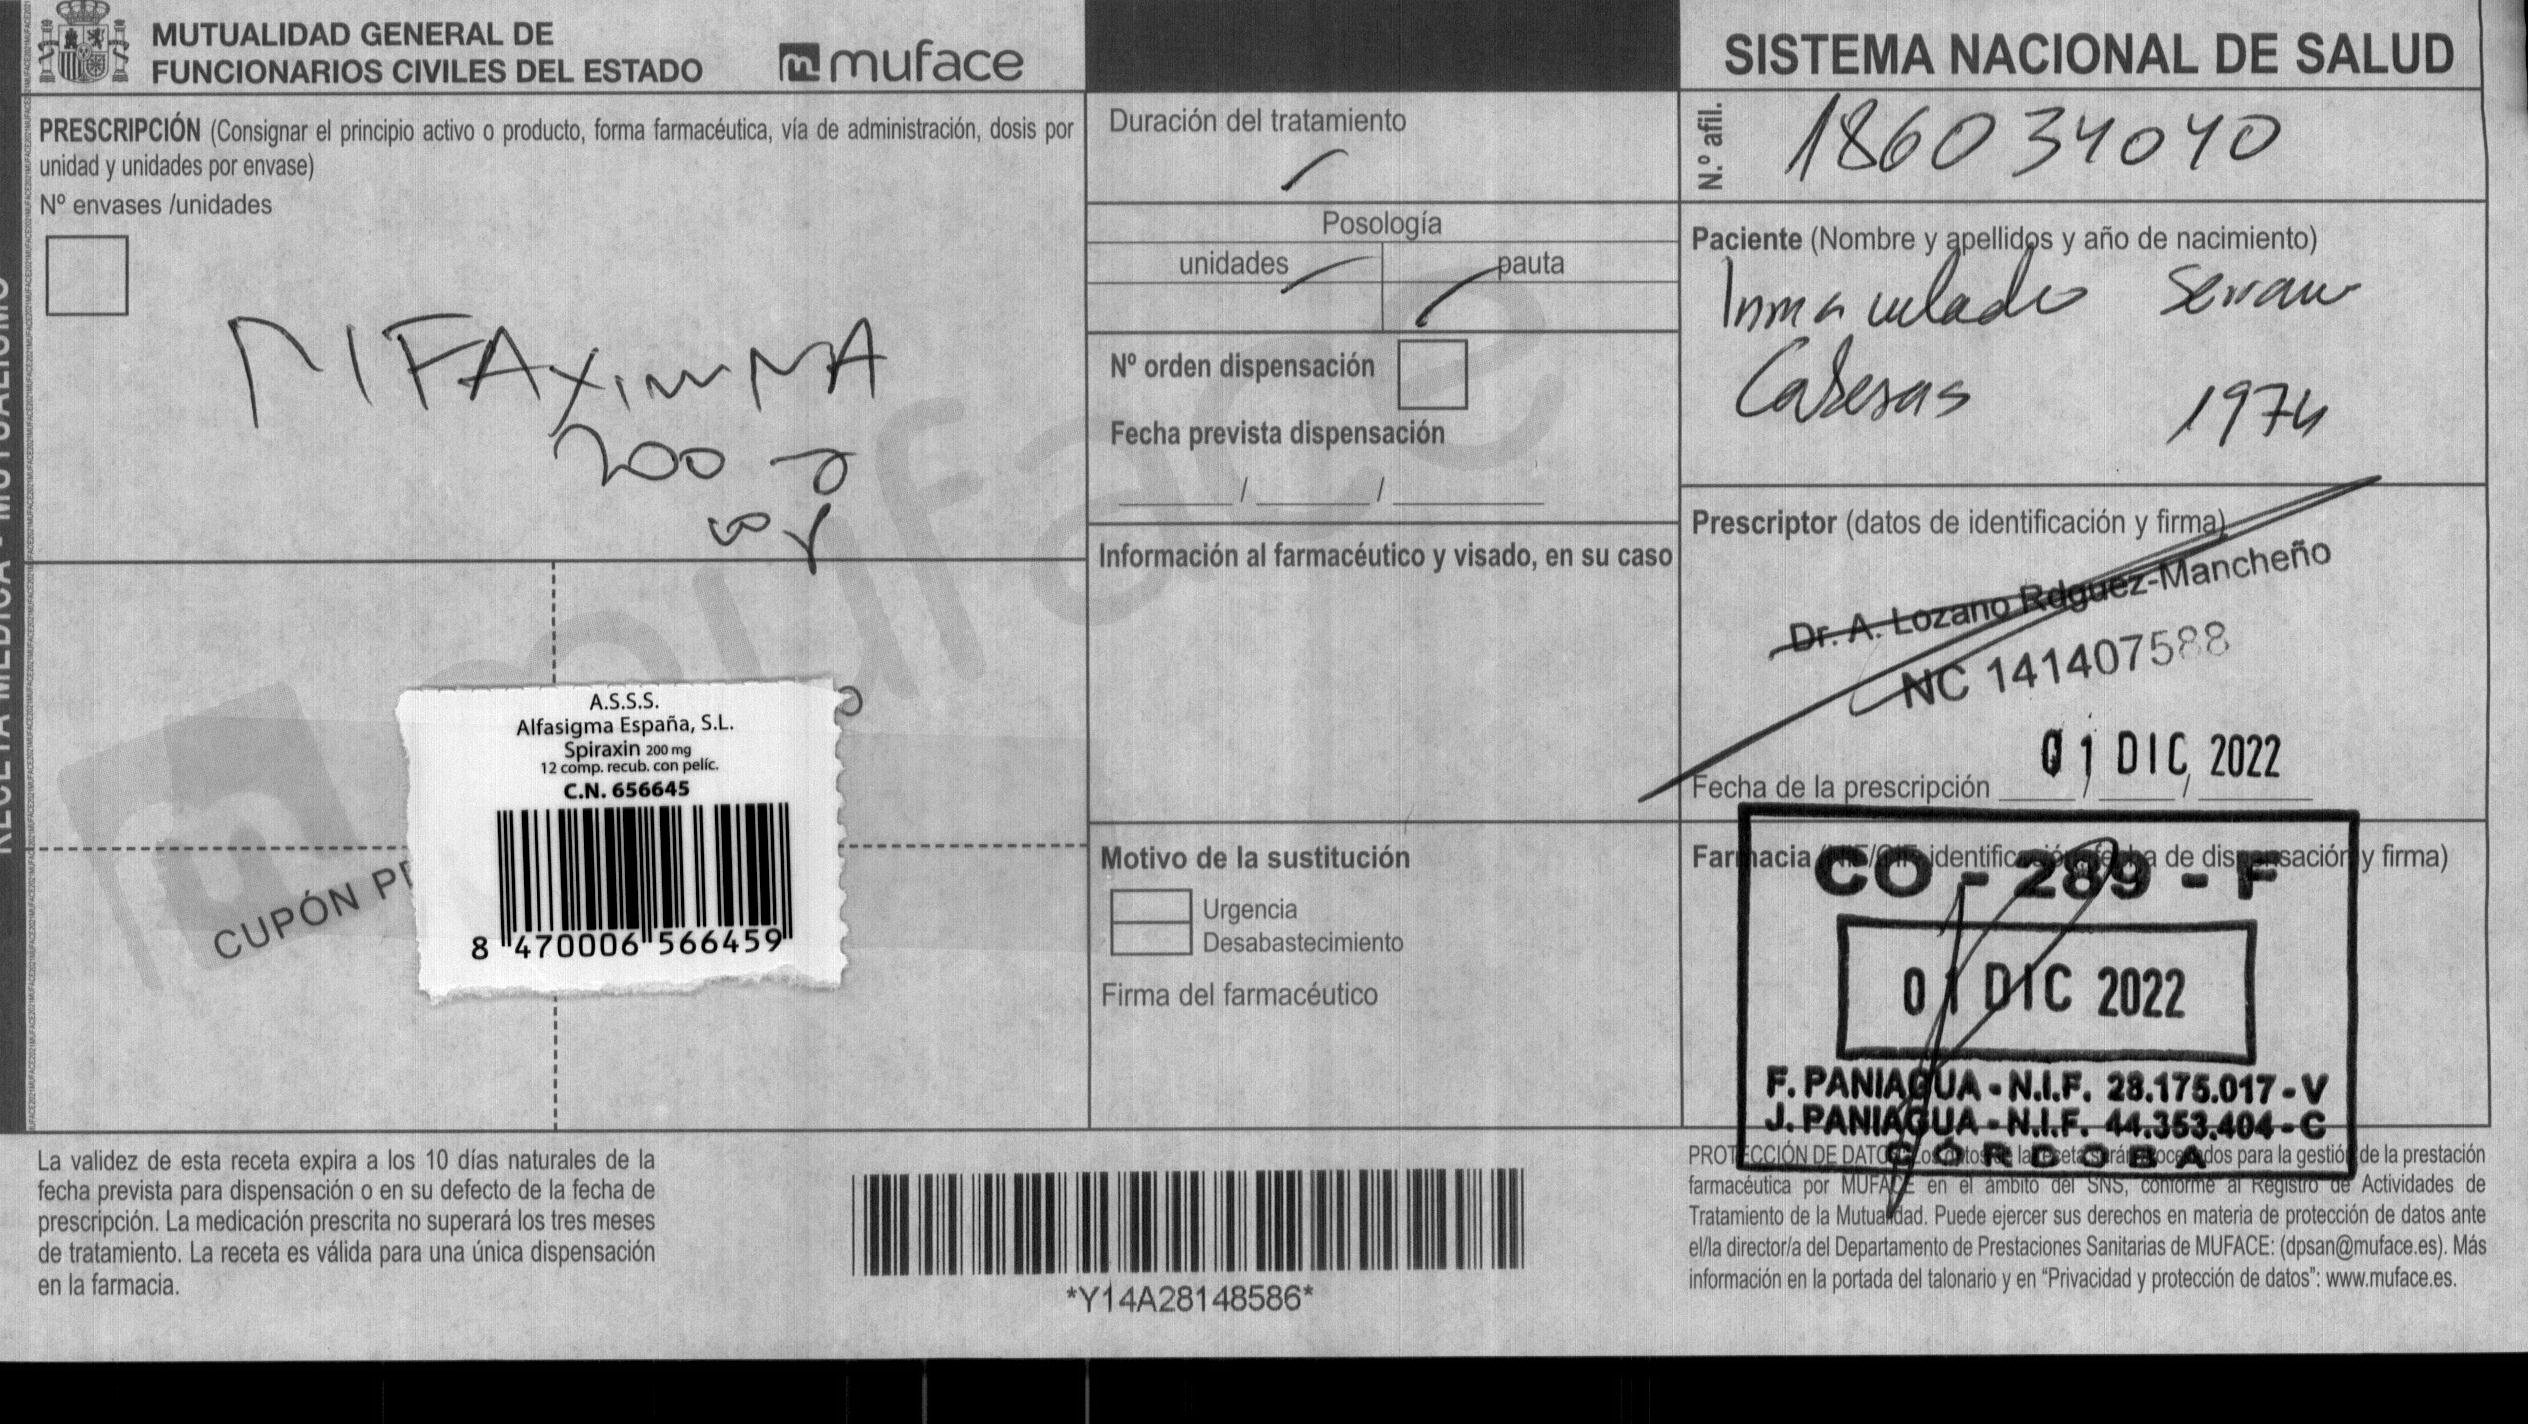 MUTUALIDAD GENERAL DE
FUNCIONARIOS CIVILES DEL ESTADO
muface
PRESCRIPCIÓN (Consignar el principio activo o producto, forma farmacéutica, vía de administración, dosis por
unidad y unidades por envase)
Nº envases /unidades
200
A.S.S.S.
Alfasigma España, S.L.
Spiraxin 200 mg
12 comp. recub. con pelíc.
C.N. 656645
8 470006 566459
CUPÓN
Duración del tratamiento
Posología
unidades
pauta
Nº orden dispensación
Fecha prevista dispensación
/ /
Información al farmacéutico y visado, en su caso
Motivo de la sustitución
Urgencia
Desabastecimiento
Firma del farmacéutico
SISTEMA NACIONAL DE SALUD
N.º afil.
186034040
Paciente (Nombre y apellidos y año de nacimiento)
Inmaculada Serrano
1974
Prescriptor (datos de identificación y firma)
Dr. A. Lozano Rdguez-Mancheño
NC 141407588
01 DIC 2022
Fecha de la prescripción / /
Farmacia (NIF/CIF, identificación, fecha de dispensación y firma)
CO - 289 - F
01 DIC 2022
F. PANIAGUA - N.I.F. 28.175.017 - V
J. PANIAGUA - N.I.F. 44.353.404 - C
CÓRDOBA
La validez de esta receta expira a los 10 días naturales de la
fecha prevista para dispensación o en su defecto de la fecha de
prescripción. La medicación prescrita no superará los tres meses
de tratamiento. La receta es válida para una única dispensación
en la farmacia.
*Y14A28148586*
PROTECCIÓN DE DATOS: Los datos de la receta serán procesados para la gestión de la prestación
farmacéutica por MUFACE en el ámbito del SNS, conforme al Registro de Actividades de
Tratamiento de la Mutualidad. Puede ejercer sus derechos en materia de protección de datos ante
el/la director/a del Departamento de Prestaciones Sanitarias de MUFACE: (dpsan@muface.es). Más
información en la portada del talonario y en “Privacidad y protección de datos”: www.muface.es.